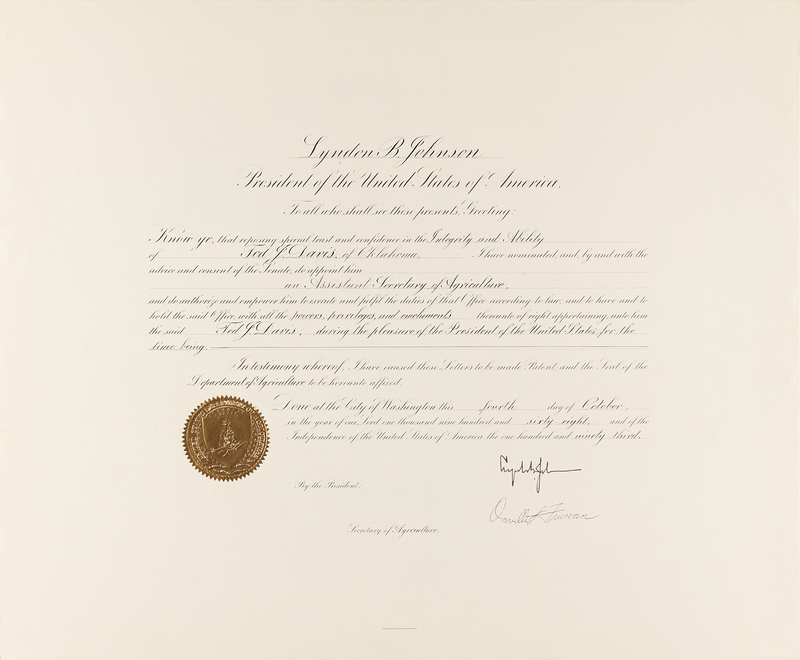 Lyndon B. Johnson
President of the United States of America.
To all who shall see these presents, Greeting:
Know ye, that reposing special trust and confidence in the Integrity and Ability
of Ted J. Davis, of Oklahoma, I have nominated, and, by and with the
advice and consent of the Senate, do appoint him
an Assistant Secretary of Agriculture,
and do authorize and empower him to execute and fulfil the duties of that Office according to law, and to have and to
hold the said Office, with all the powers, privileges, and emoluments thereunto of right appertaining, unto him
the said Ted J. Davis, during the pleasure of the President of the United States, for the
time being.
In testimony whereof, I have caused these Letters to be made Patent, and the Seal of the
Department of Agriculture to be hereunto affixed.
Done at the City of Washington this fourth day of October,
in the year of our Lord one thousand nine hundred and sixty eight, and of the
Independence of the United States of America the one hundred and ninety third.
By the President:
Orville L Freeman
Secretary of Agriculture.